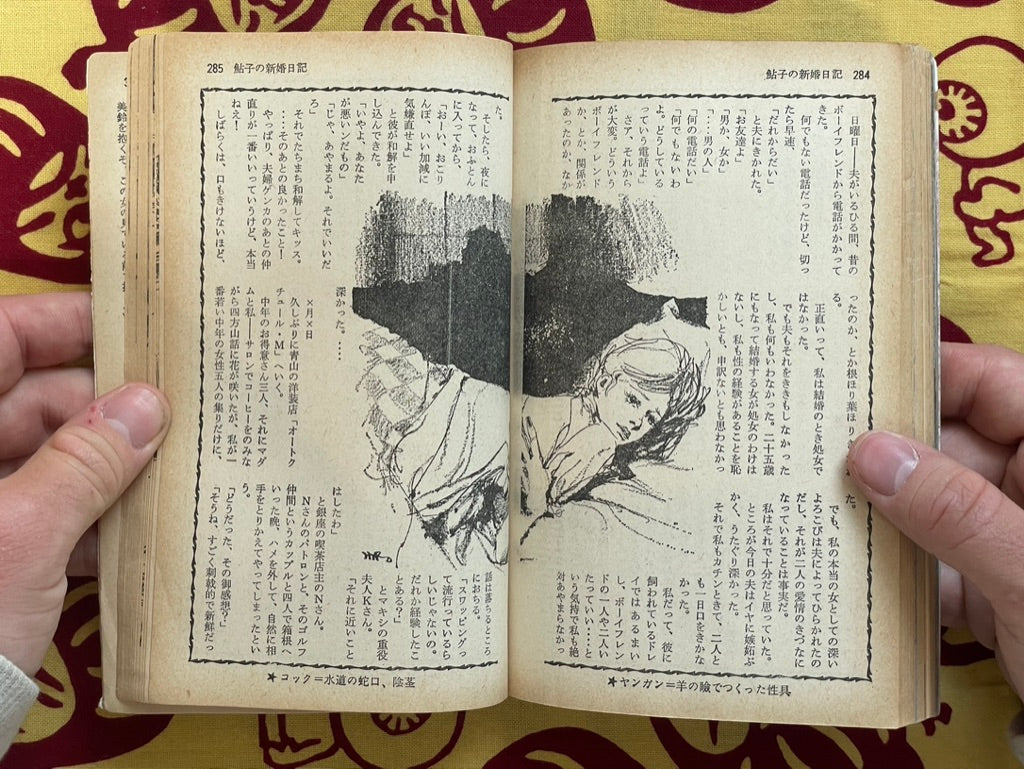 鮎子の新婚日記 284
日曜日――夫がいるひる間、昔の
ボーイフレンドから電話がかかって
きた。
何でもない電話だったけど、切っ
たら早速、
「だれからだい」
と夫にきかれた。
「お友達よ」
「男か、女か」
「・・・男の人」
「何の電話だい」
「何でもないわ
よ。どうしている
っていう電話よ」
さア、それから
が大変。どういう
ボーイフレンド
か、とか、関係が
あったのか、なか
ったのか、とか根ほり葉ほり
る。
正直いって、私は結婚のとき処女で
はなかった。
でも夫もそれをききもしなかった
し、私も何もいわなかった。二十五歳
にもなって結婚する女が処女のわけは
ないし、私も性の経験があることを恥
かしいとも、申訳ないとも思わなかっ
た。
でも、私の本当の女としての深い
よろこびは夫によってひらかれたの
だし、それが二人の愛情のきづなに
なっていることは事実だ。
私はそれで十分だと思っていた。
ところが今日の夫はイヤに嫉妬ぶ
かく、うたぐり深かった。
それで私もカチンときて、二人と
も一日口をきかな
かった。
私だって、彼に
飼われているドレ
イではあるまい
し、ボーイフレン
ドの一人や二人い
たっていい・・・と
いう気持で私も絶
対あやまらなかっ
★ヤンガン＝羊の瞼でつくった性具
285 鮎子の新婚日記
た。
そしたら、夜に
なって、おふとん
に入ってから、
「おーい、おこり
んぼ、いい加減に
気嫌直せよ」
と彼が和解を申
し込んできた。
「いやよ、あなた
が悪いンだもの」
「じゃ、あやまるよ。それでいいだ
ろ」
それでたちまち和解してキッス。
・・・そのあとの良かったこと！
やっぱり、夫婦ゲンカのあとの仲
直りが一番いいっていうけど、本当
ねえ！
しばらくは、口もきけないほど、
深かった。・・・・
×月×日
久しぶりに青山の洋装店「オートク
チュール・M」へいく。
中年のお得意さん三人、それにマダ
ムと私――サロンでコーヒーをのみな
がら四方山話に花が咲いたが、私が一
番若い中年の女性五人の集りだけに、
話は落ちるところ
におちる。
「スワッピングっ
て流行っているら
しいじゃないの。
だれか経験したこ
とある？」
とマキシの重役
夫人Kさん。
「それに近いこと
はしたわ」
と銀座の喫茶店主のNさん。
Nさんのパトロンと、そのゴルフ
仲間というカップルと四人で箱根へ
いった晩、ハメを外して、自然に相
手をとりかえてやってしまったとい
う。
「どうだった、その御感想？」
「そうね、すごく刺戟的で新鮮だっ
★コック＝水道の蛇口、陰茎